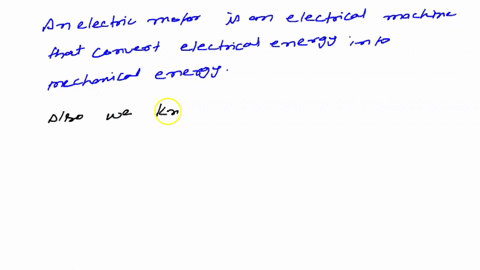 An electric motor is an electrical machine
that convert electrical energy into
mechanical energy.
Also we kn